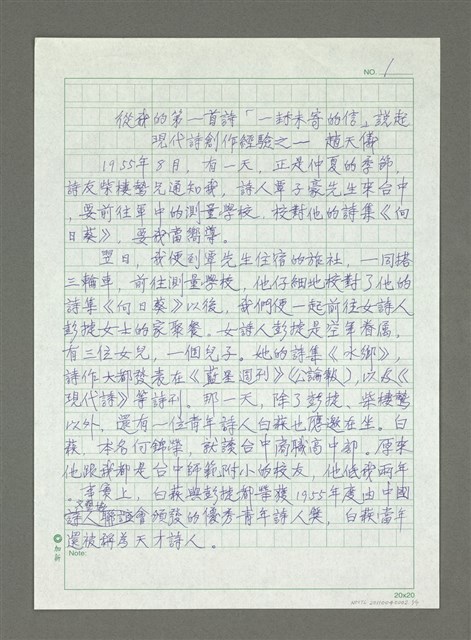 NO. 1
從我的第一首詩「一封未寄的信」說起
現代詩創作經驗之一 趙天儀
1955年8月,有一天,正是仲夏的季節,
詩友柴棲鷙兄通知我,詩人覃子豪先生來台中
,要前往軍中的測量學校,校對他的詩集《向
日葵》,要我當嚮導。
翌日,我便到覃先生住宿的旅社,一同搭
三輪車,前往測量學校,他仔細地校對了他的
詩集《向日葵》以後,我們便一起前往女詩人
彭捷女士的家聚餐。女詩人彭捷是空軍眷屬,
有三位女兒,一個兒子。她的詩集《水鄉》,
詩作大都發表在《藍星週刊》《公論報》,以及《
現代詩》等詩刊。那一天,除了彭捷、柴棲鷙
以外,還有一位青年詩人白萩也應邀在坐。白
萩,本名何錦榮,就讀台中商職高中部。原來
他跟我都是台中師範附小的校友,他低我兩年
。事實上,白萩與彭捷都榮獲1955年度由中國
文藝協
詩人聯誼會頒發的優秀青年詩人獎,白萩當年
還被稱為天才詩人。
Note:
20x20